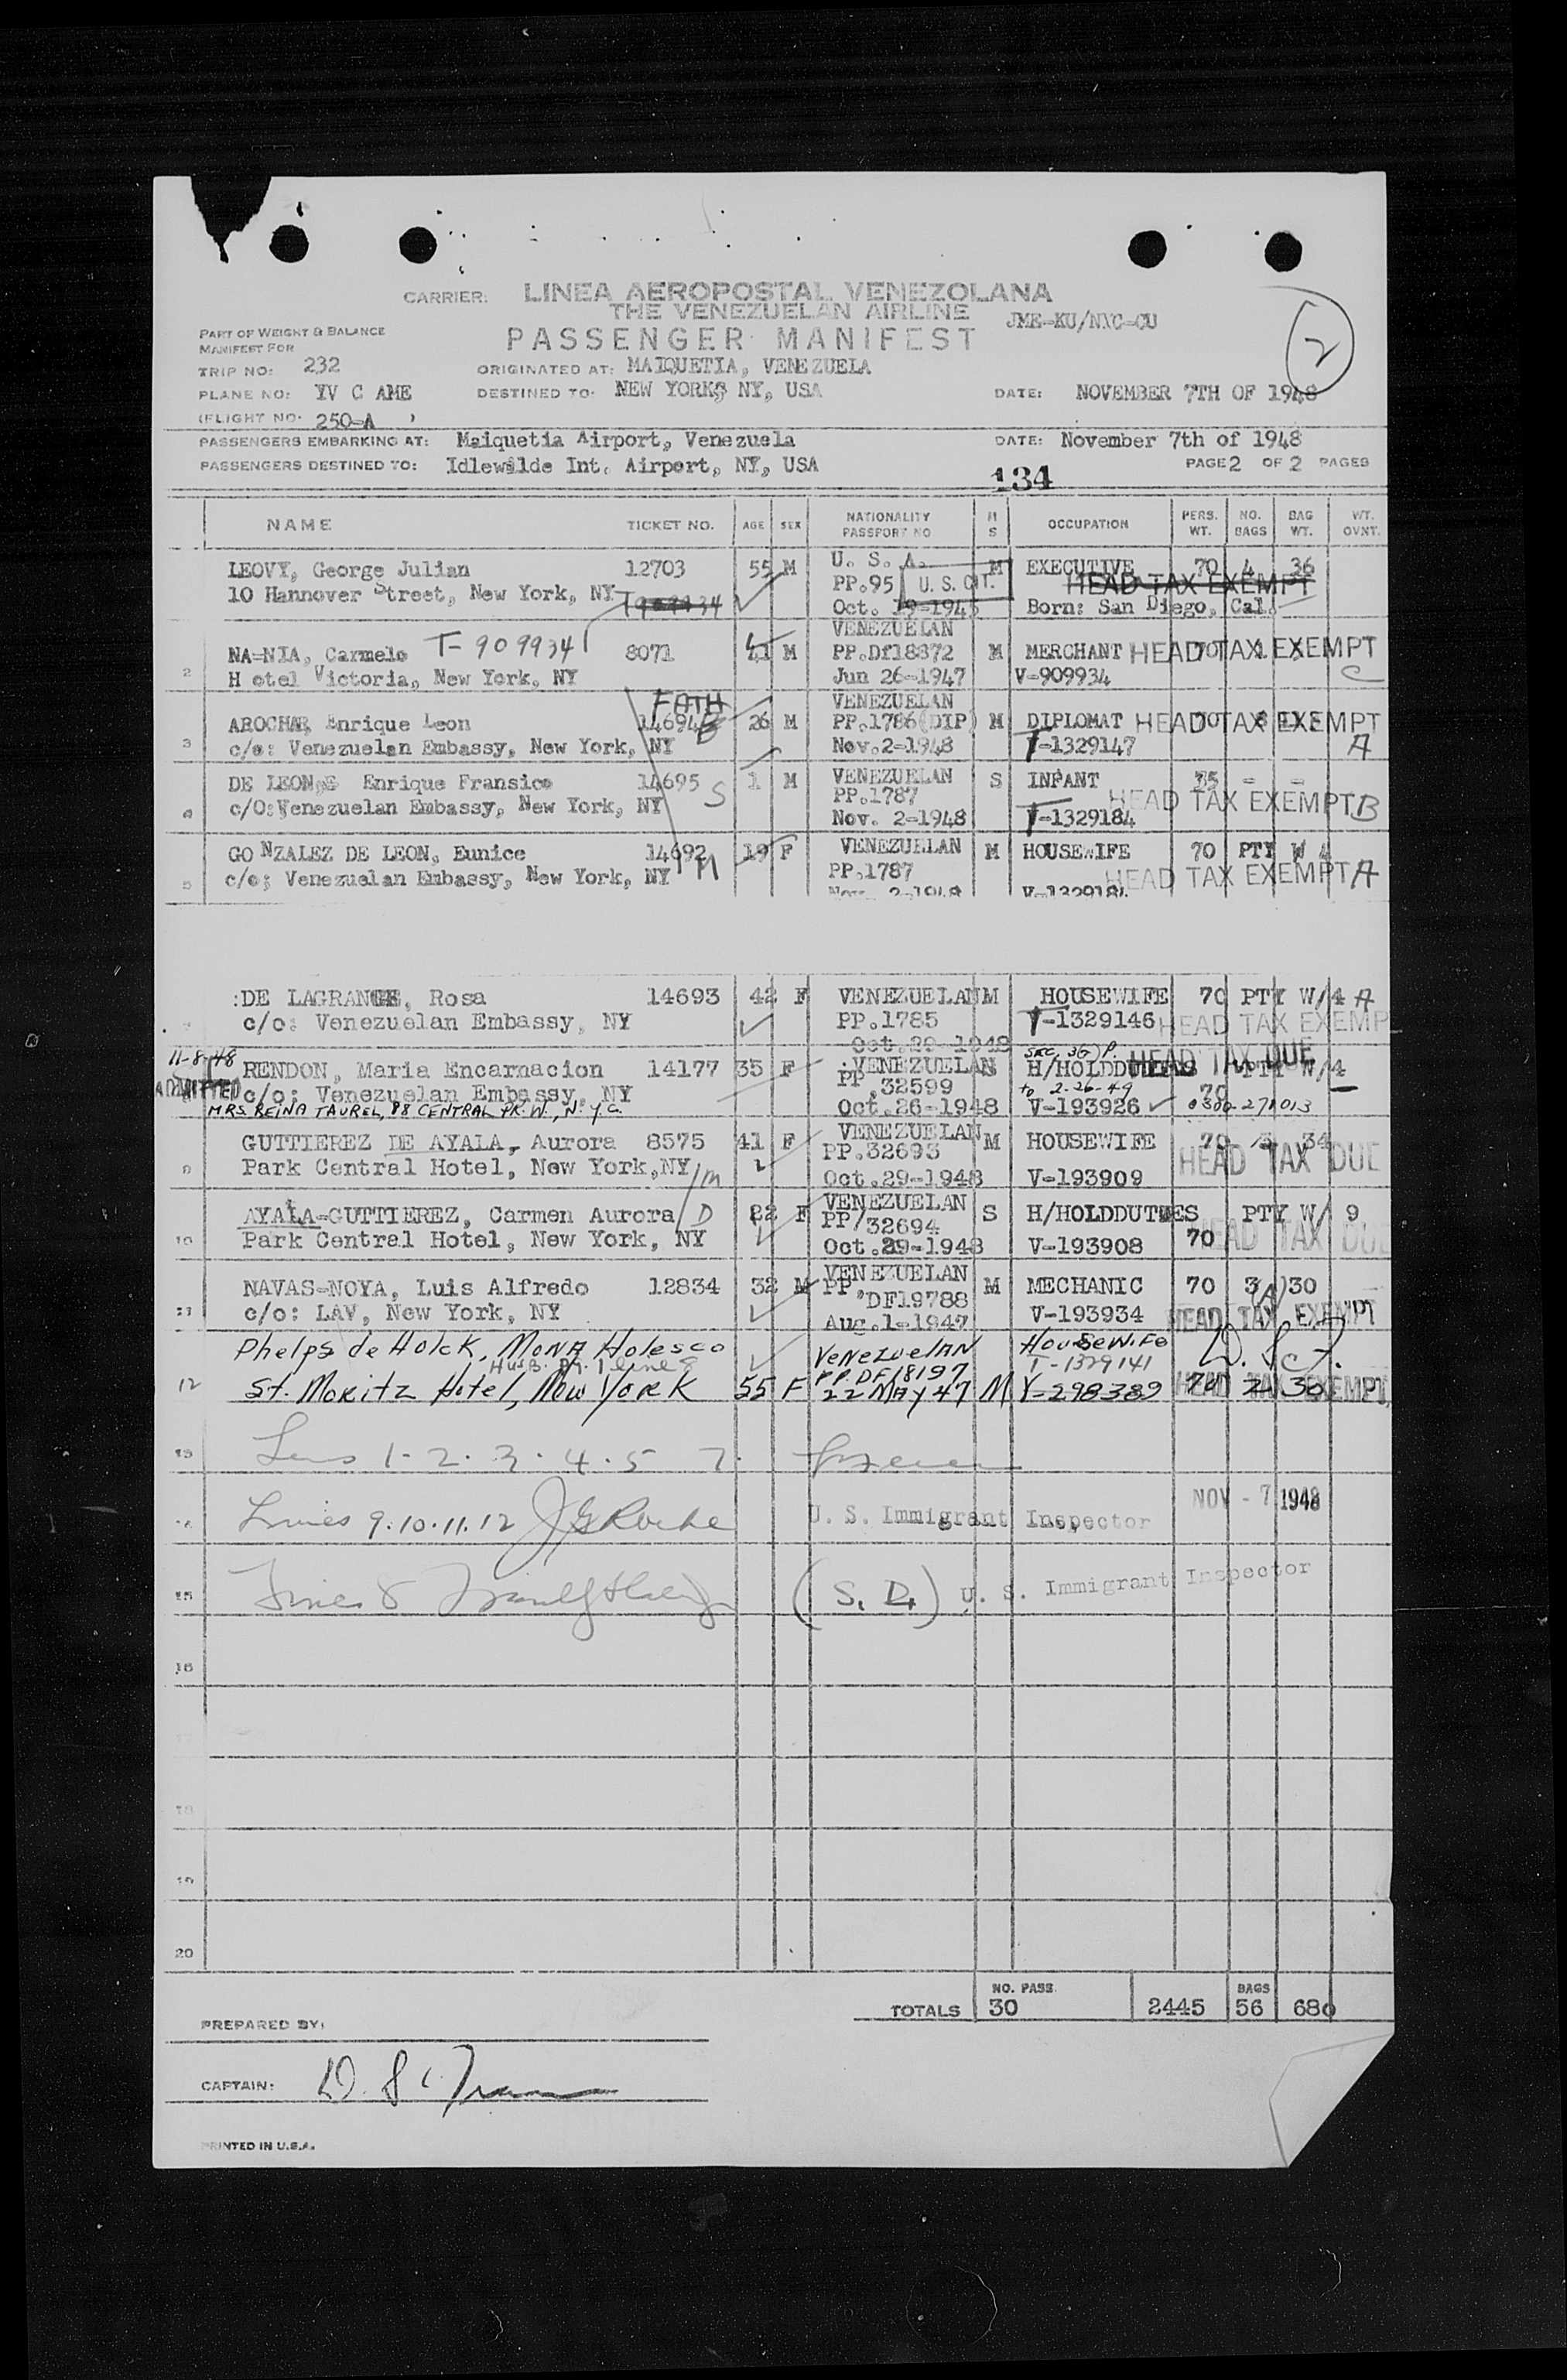 CARRIER: LINEA AEROPOSTAL VENEZOLANA
THE VENEZUELAN AIRLINE
JME-KU/NYC-CU
PART OF WEIGHT & BALANCE
MANIFEST FOR
PASSENGER MANIFEST
2
TRIP NO: 232
ORIGINATED AT: MAIQUETIA, VENEZUELA
PLANE NO: YV C AME
DESTINED TO: NEW YORK, NY, USA
DATE: NOVEMBER 7TH OF 1948
(FLIGHT NO. 250-A )
PASSENGERS EMBARKING AT: Maiquetia Airport, Venezuela
DATE: November 7th of 1948
PASSENGERS DESTINED TO: Idlewilde Int. Airport, NY, USA
134
PAGE 2 OF 2 PAGES
NAME TICKET NO. AGE SEX NATIONALITY PASSPORT NO M S OCCUPATION PERS. WT. NO. BAGS BAG WT. WT. OVNT.
LEOVY, George Julian 12703 55 M U. S. A. M EXECUTIVE 70 4 36
PP.95 U. S. CIT. HEAD TAX EXEMPT
10 Hannover Street, New York, NY
Oct. 19-1945 Born: San Diego, Cal.
VENEZUELAN
2 NA-NIA, Carmelo T-909934 8071 41 M PP.Df18372 M MERCHANT 70 HEAD TAX EXEMPT
Hotel Victoria, New York, NY Jun 26-1947 V-909934 C
FATH
VENEZUELAN
3 AROCHA, Enrique Leon 14694 26 M PP.1786(DIP) M DIPLOMAT 70 HEAD TAX EXEMPT
c/o: Venezuelan Embassy, New York, NY Nov.2-1948 T-1329147 A
4 DE LEON, Enrique Fransico 14695 S 1 M VENEZUELAN S INFANT 35 - -
PP.1787 HEAD TAX EXEMPT B
c/O:Venezuelan Embassy, New York, NY
Nov. 2-1948 T-1329184
5 GONZALEZ DE LEON, Eunice 14692 M 19 F VENEZUELAN M HOUSEWIFE 70 PTY W 4
c/o; Venezuelan Embassy, New York, NY PP.1787 HEAD TAX EXEMPT A
Nov. 2-1948 V-1329184
:DE LAGRANGE, Rosa 14693 42 F VENEZUELAN M HOUSEWIFE 70 PTY W/4 A
c/o: Venezuelan Embassy, NY PP.1785 T-1329146 HEAD TAX EXEMP
Oct.29-1948
11-8-48 SEC. 3(2) P. HEAD TAX DUE
RENDON, Maria Encarnacion 14177 35 F VENEZUELAN S H/HOLDDUTIES PTY W/4
ADMITTED c/o: Venezuelan Embassy, NY PP.32599 to 2-26-49 70
MRS. REINA TAUREL, 88 CENTRAL PK. W., N.Y.C. Oct.26-1948 V-193926 0300-271013
9 GUTTIEREZ DE AYALA, Aurora 8575 41 F VENEZUELAN M HOUSEWIFE 70 34
Park Central Hotel, New York,NY PP.32693 HEAD TAX DUE
Oct.29-1948 V-193909
10 AYALA-GUTTIEREZ, Carmen Aurora D 22 F VENEZUELAN S H/HOLDDUTIES PTY W/ 9
Park Central Hotel, New York, NY PP/32694 70 HEAD TAX DUE
Oct.29-1948 V-193908
11 NAVAS-NOYA, Luis Alfredo 12834 32 M VENEZUELAN M MECHANIC 70 3 (A) 30
c/o: LAV, New York, NY PP.DF19788 V-193934 HEAD TAX EXEMPT
Aug.1-1947
Phelps de Holck, MONA Holesco VENEZUELAN HOUSEWIFE
PP.DF18197 T-1329141
12 St. Moritz Hotel, New York 55 F 22 MAY 47 M V-298389 70 2 30 HEAD TAX EXEMPT
13 1-2.3.4.5 7.
14 Lines 9.10.11.12 JGRoche U. S. Immigrant Inspector NOV - 7 1948
15 Lines 8 (S. D.) U. S. Immigrant Inspector
16
18
19
20
NO. PASS. BAGS
TOTALS 30 2445 56 680
PREPARED BY:
CAPTAIN:
PRINTED IN U.S.A.